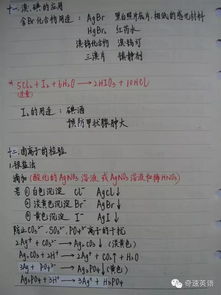 十一.溴、碘的应用
含Br化合物用途: AgBr 黑白照片底片.相纸的感光材料
HgBr₂ 红药水
溴锑化合物 溴锑可
三溴片 镇静剂
* 5Cl₂ + I₂ + 6H₂O → 2HIO₃ + 10HCl
(过量)
I₂的用途: 碘酒
预防甲状腺肿大
十二.卤离子的检验
1.沉盐法
滴加(酸化的AgNO₃溶液 或AgNO₃溶液和稀HNO₃)
若 ① 白色沉淀 Cl⁻ AgCl↓
② 淡黄沉淀 Br⁻ AgBr↓
③ 黄色沉淀 I⁻ AgI↓
除去CO₃²⁻.SO₃²⁻.PO₄³⁻离子的干扰
2Ag⁺ + CO₃²⁻ → Ag₂CO₃↓ (淡黄色)
Ag₂CO₃ + 2H⁺ → 2Ag⁺ + CO₂↑ + H₂O
3Ag⁺ + PO₄³⁻ → Ag₃PO₄↓ (黄色)
Ag₃PO₄ + 3H⁺ → 3Ag⁺ + H₃PO₄
奇速英语